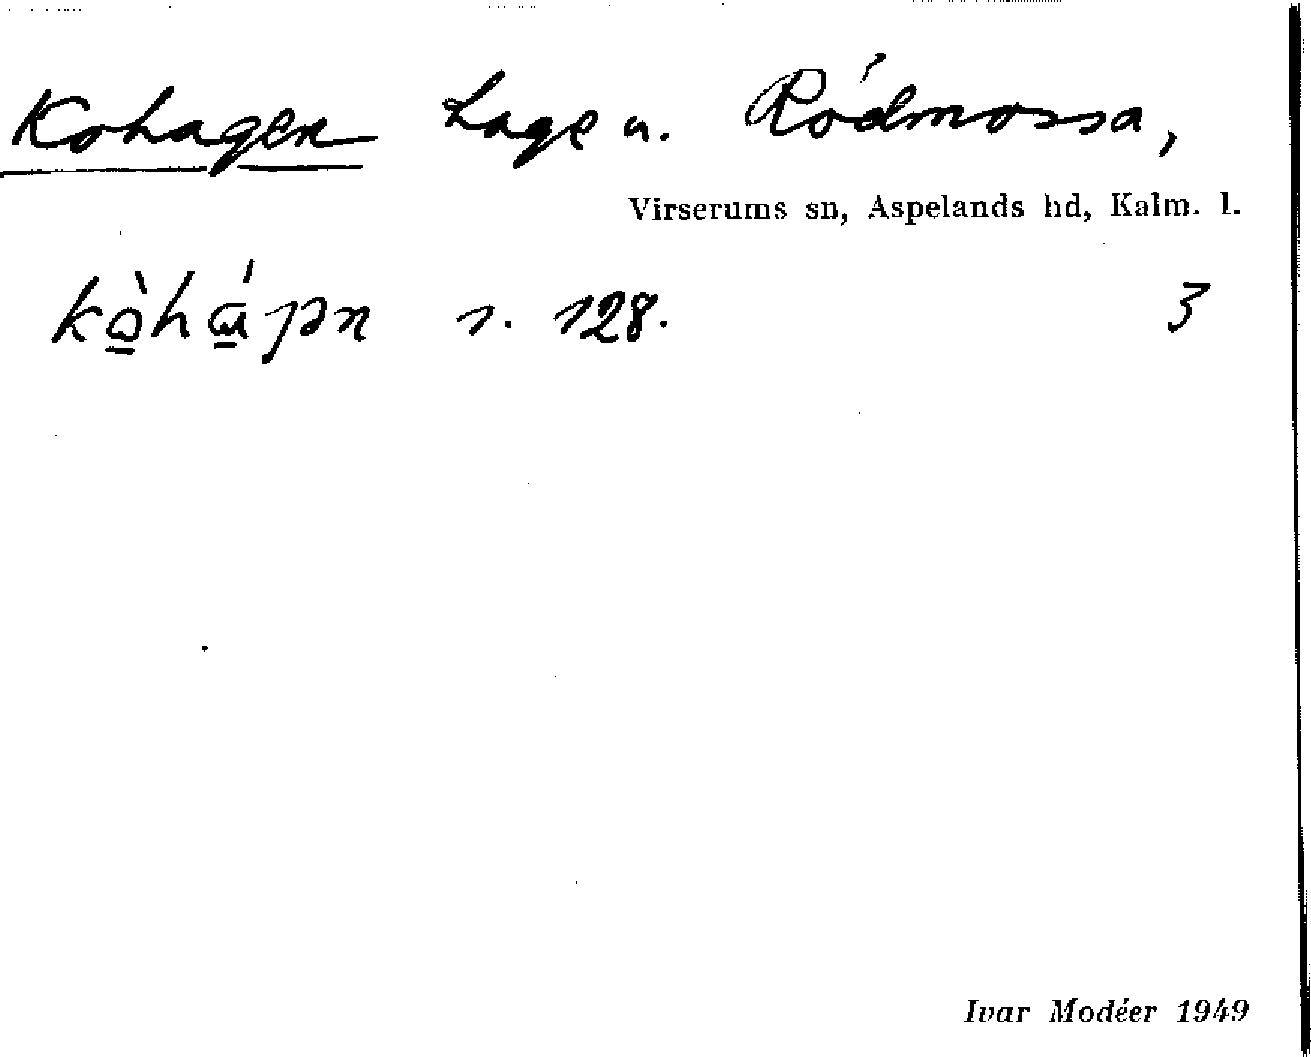 Kohagen hage u. Rödmossa,
Virserums sn, Aspelands hd, Kalm. l.
s. 128. 3
Ivar Modéer 1949